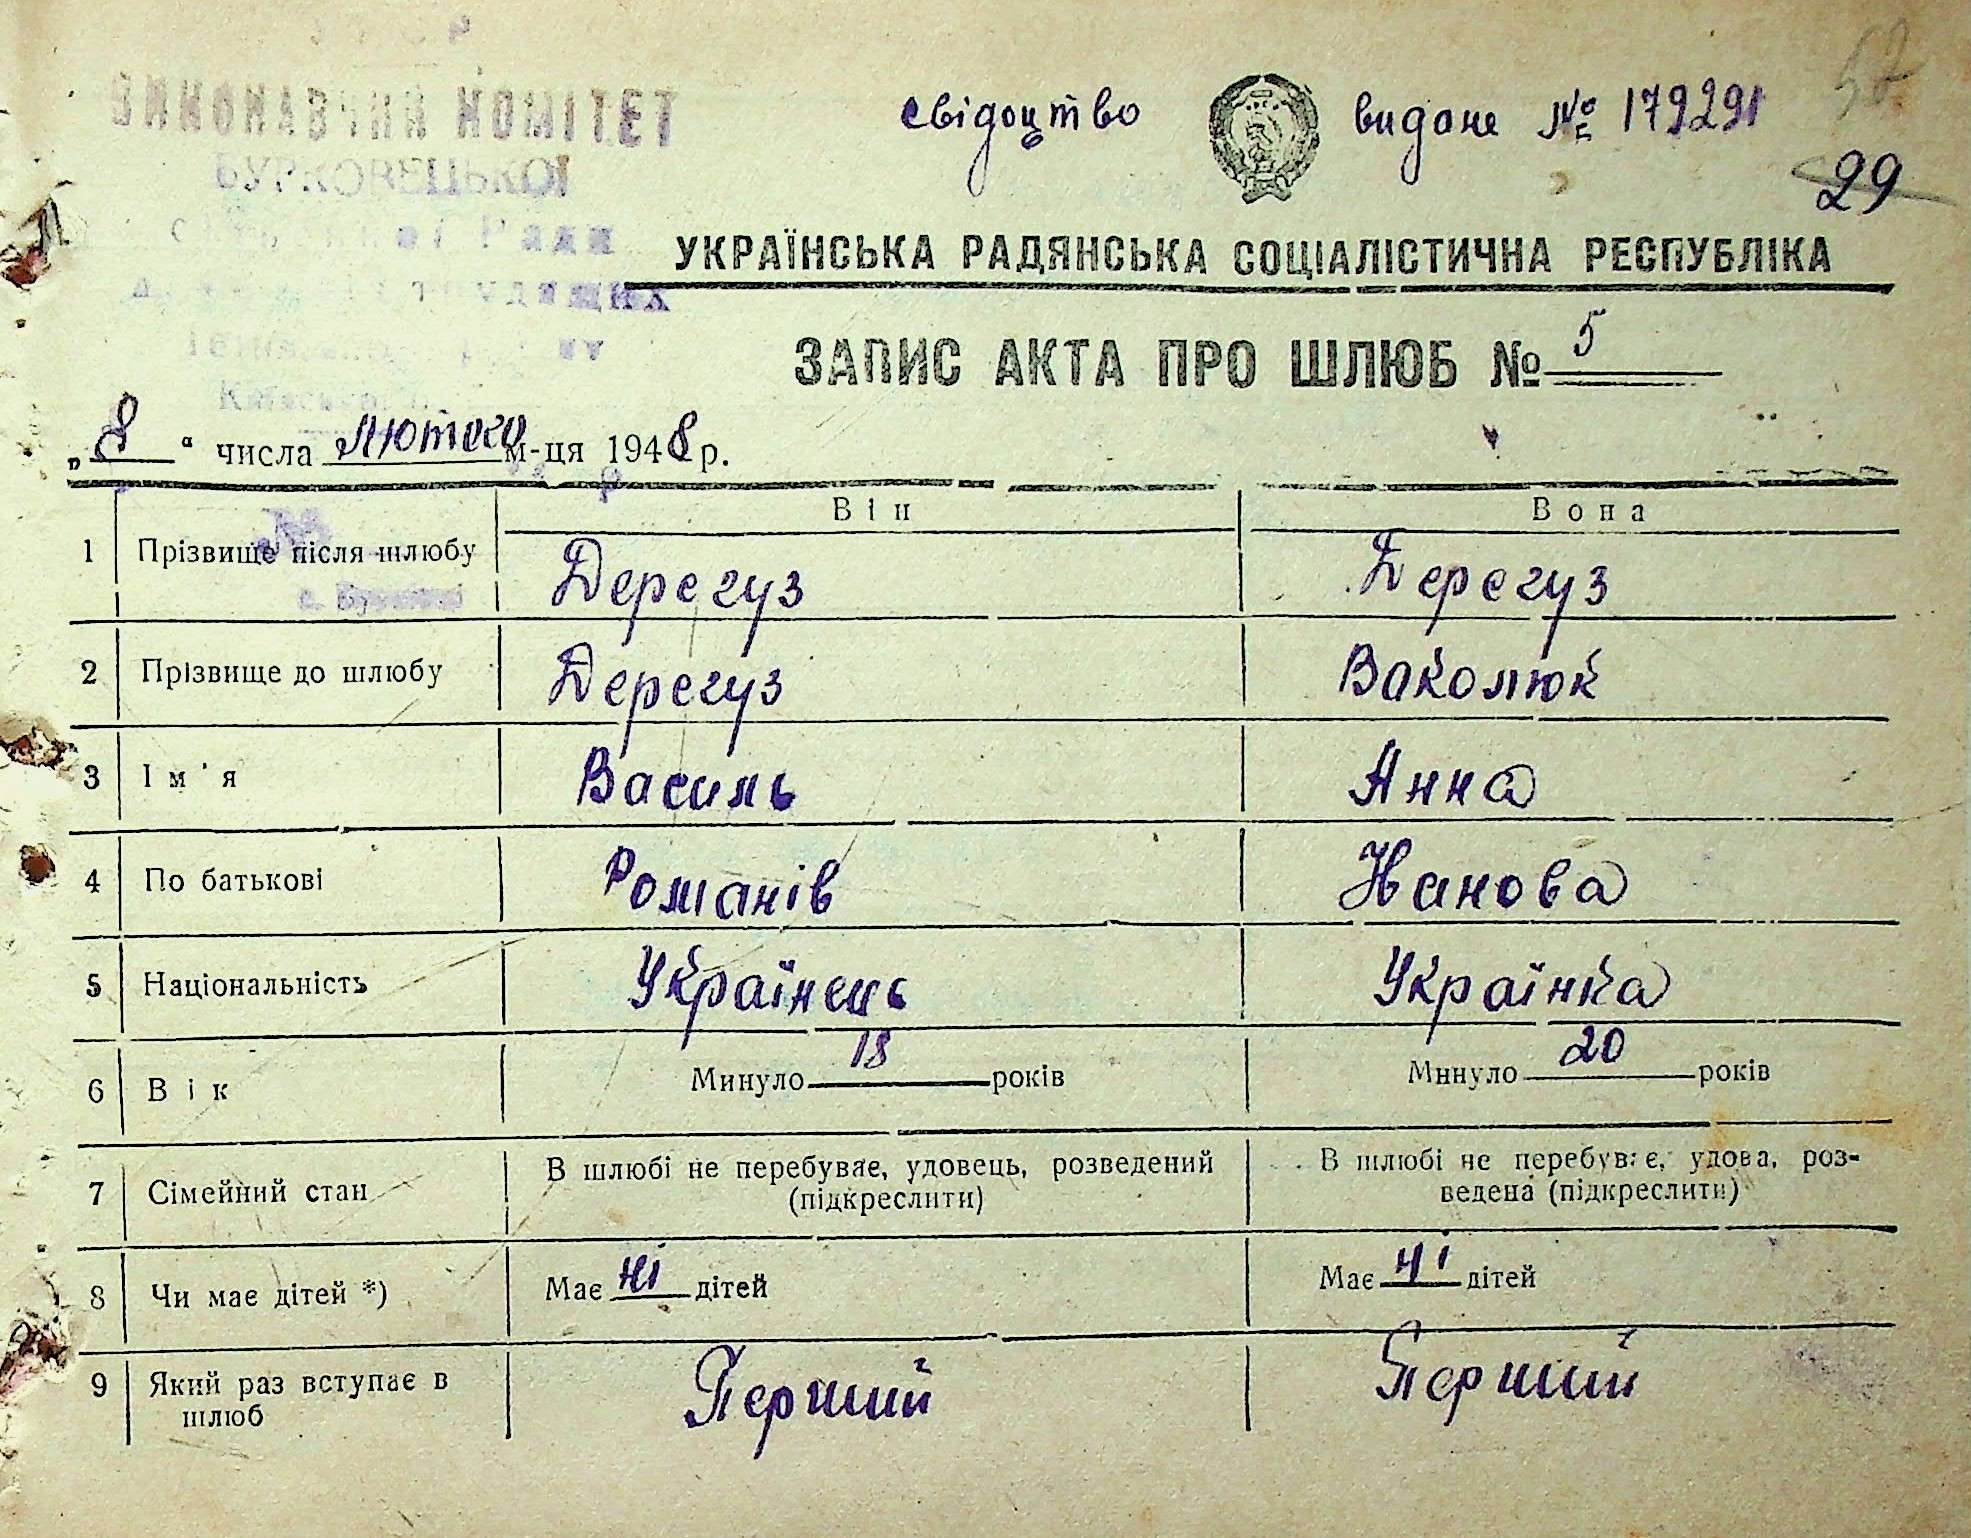 ВИКОНАВЧИЙ КОМІТЕТ
БУРКОВЕЦЬКОЇ
Ради
свідоцтво видане № 179291
29
УКРАЇНСЬКА РАДЯНСЬКА СОЦІАЛІСТИЧНА РЕСПУБЛІКА
ЗАПИС АКТА ПРО ШЛЮБ № 5
„8“ числа лютого м-ця 1948 р.
Він Вона
1 Прізвище після шлюбу Дерегуз Дерегуз
2 Прізвище до шлюбу Дерегуз Ваколюк
3 Ім'я Василь Анна
4 По батькові Романів Иванова
5 Національність Українець Українка
6 Вік Минуло 18 років Минуло 20 років
7 Сімейний стан В шлюбі не перебуває, удовець, розведений (підкреслити) В шлюбі не перебуває, удова, роз-
ведена (підкреслити)
8 Чи має дітей *) Має ні дітей Має ні дітей
9 Який раз вступає в Перший Перший
шлюб